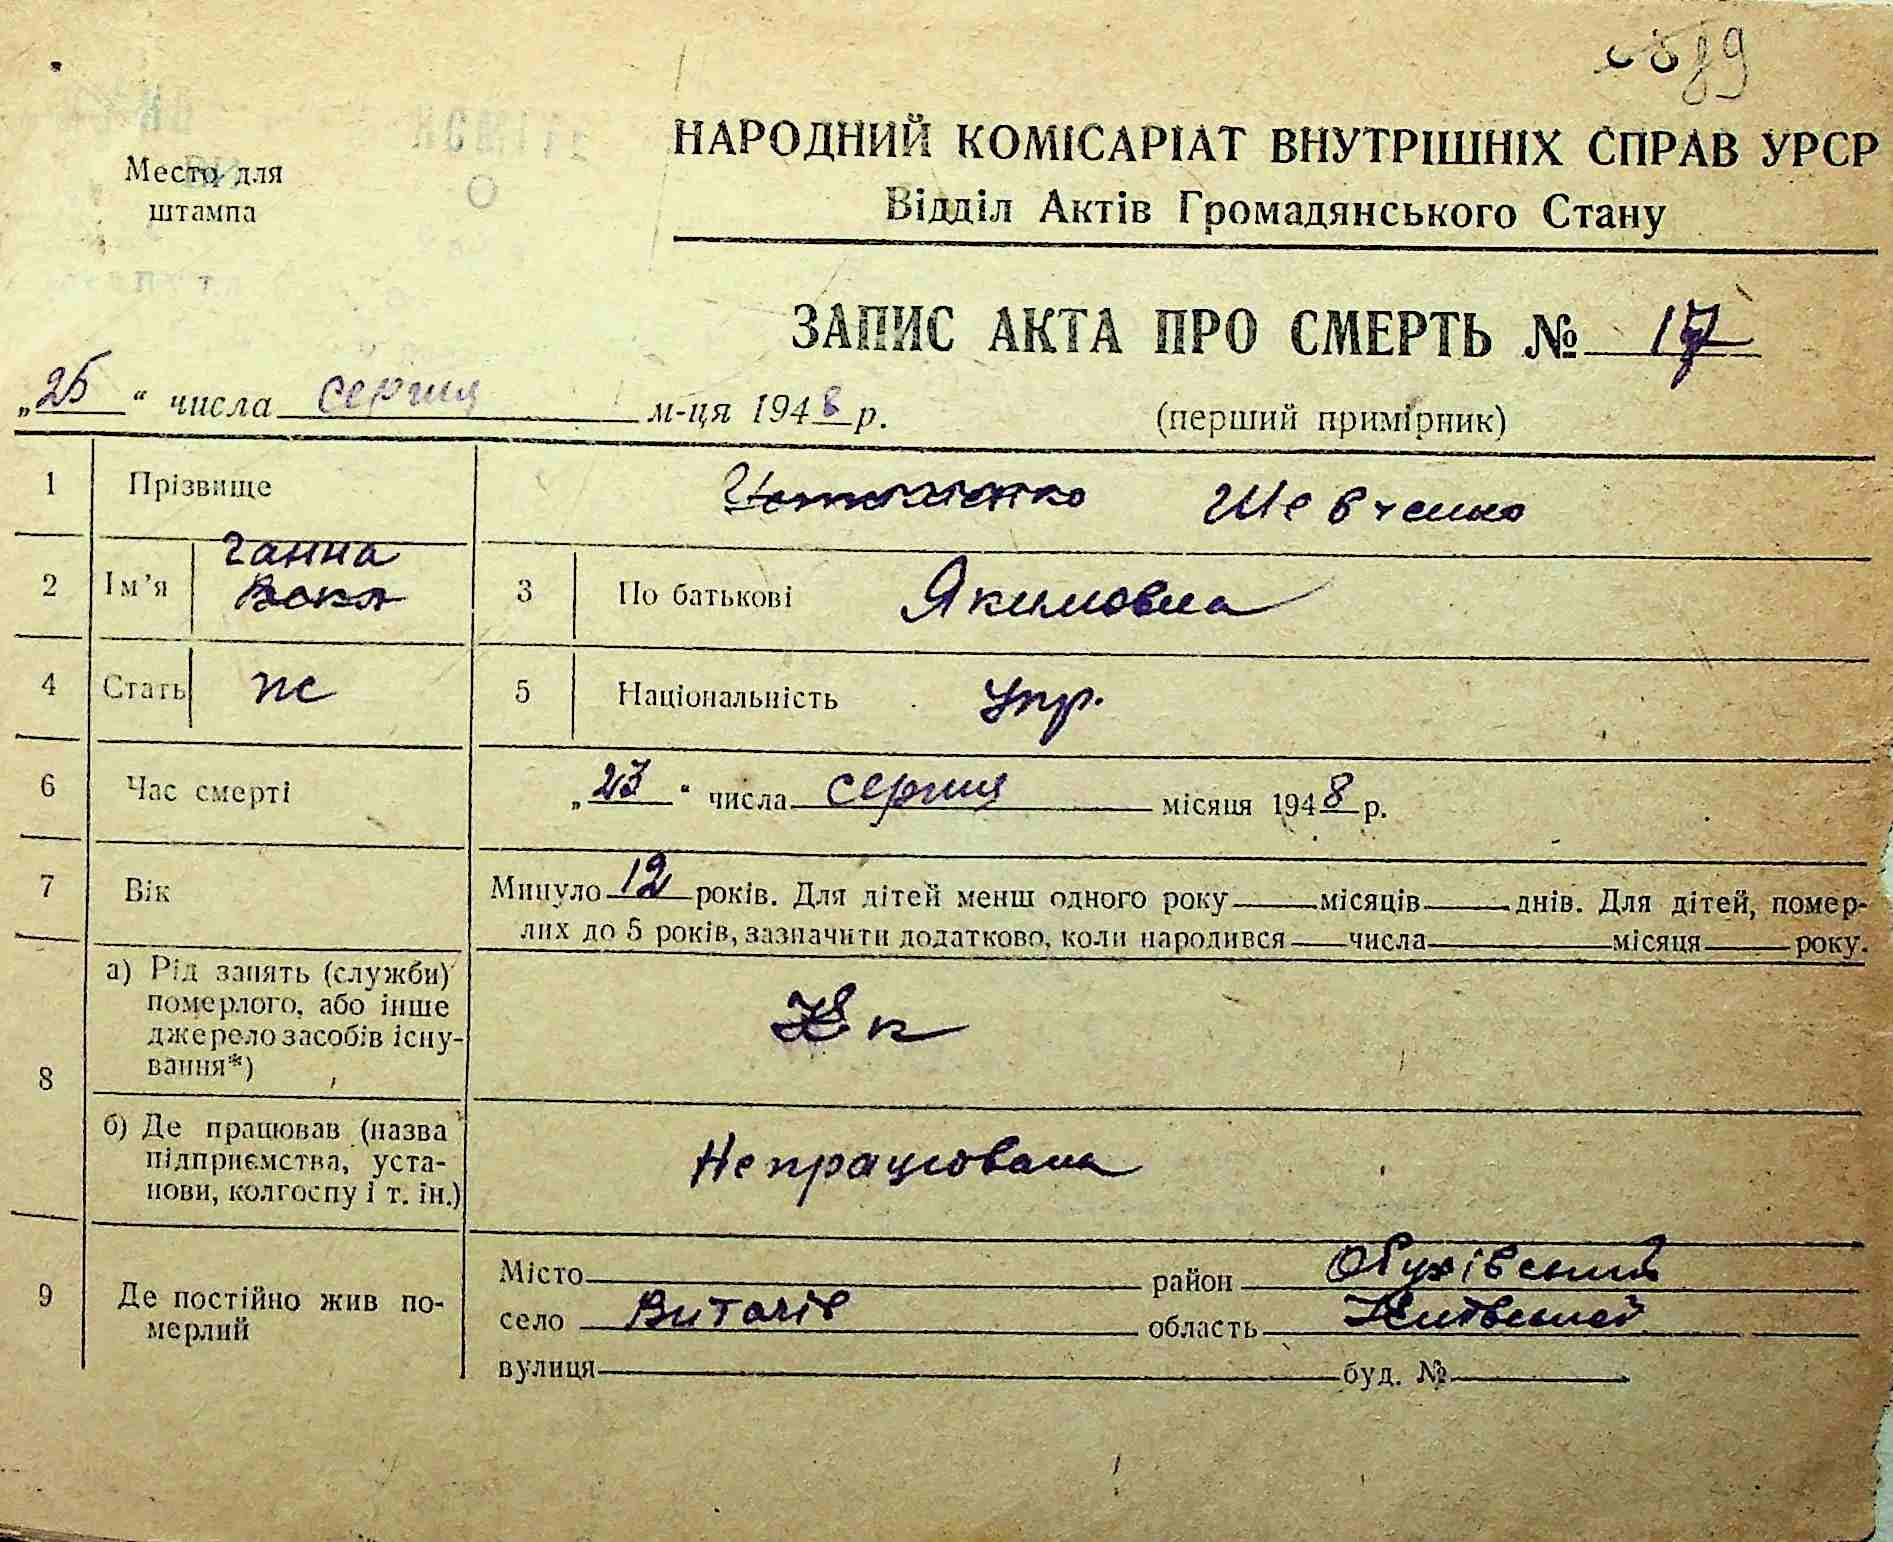 89
НАРОДНИЙ КОМІСАРІАТ ВНУТРІШНІХ СПРАВ УРСР
Место для
штампа
Відділ Актів Громадянського Стану
ЗАПИС АКТА ПРО СМЕРТЬ № 17
„25“ числа серпня м-ця 1948 р. (перший примірник)
1 Прізвище Шевченко
2 Ім’я Ганна 3 По батькові Якимовна
4 Стать ж 5 Національність укр.
6 Час смерті „23“ числа серпня місяця 1948 р.
7 Вік Минуло 12 років. Для дітей менш одного року місяців днів. Для дітей, помер-
лих до 5 років, зазначити додатково, коли народився числа місяця року.
8 а) Рід занять (служби)
померлого, або інше
джерело засобів існу-
вання*)
б) Де працював (назва
підприємства, уста-
нови, колгоспу і т. ін.)
Непрацювала
9 Де постійно жив по-
мерлий
Місто район Обухівський
село Витачів область Київській
вулиця буд. №